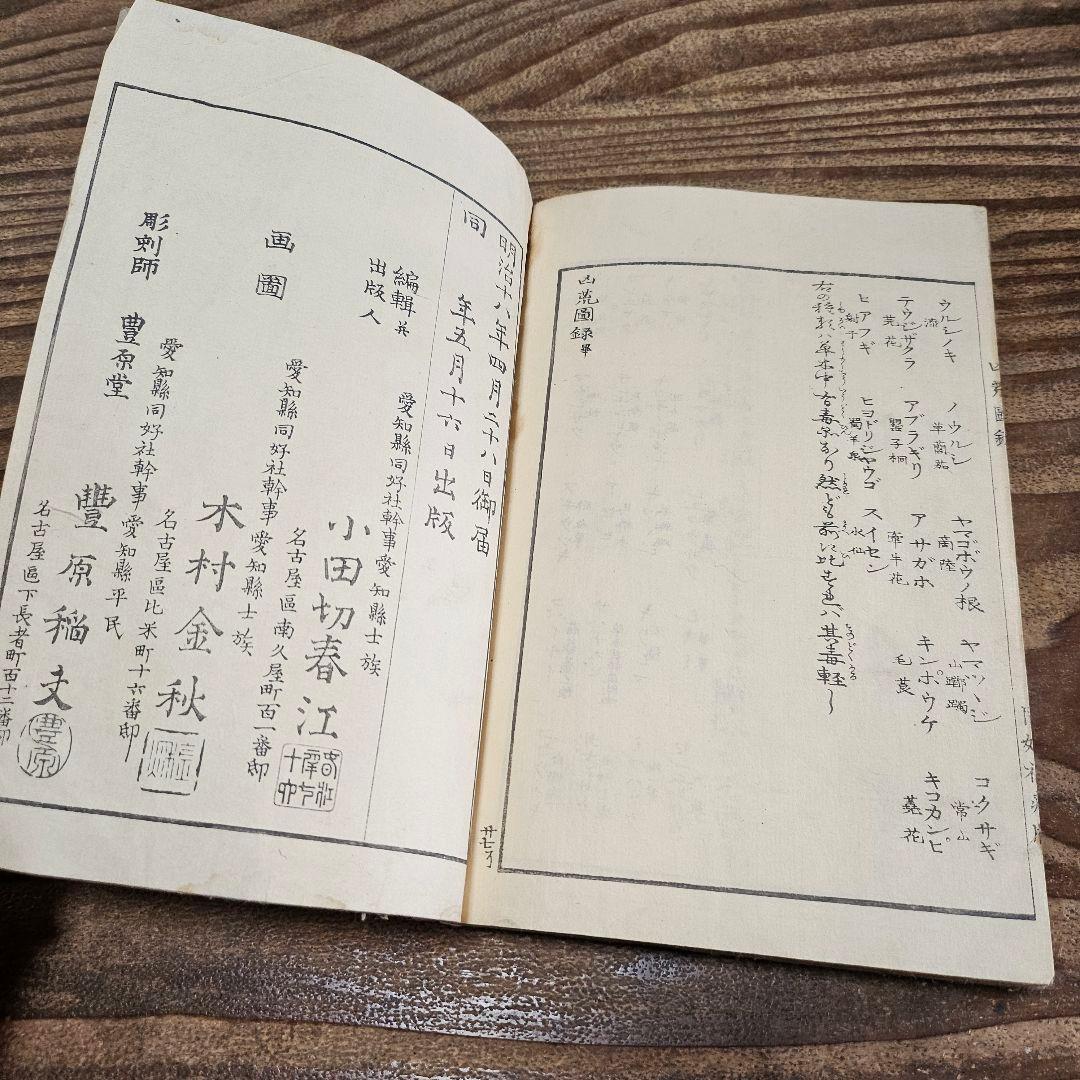 ウルシノキ 漆 ノウルシ 草䕡茹 ヤマゴボウノ根 商陸 ヤマツヽジ 山躑躅 コクサギ 常山
テウジザクラ 芫花 アブラギリ 罌子桐 アサガホ 牽牛花 キンポウゲ 毛茛 キコガンピ 蕘花
ヒアフギ 射干 ヒヨドリジヤウゴ スイセン 水仙
右の種類ハ草木中有毒品なり然ども前に比すれハ其毒軽し
凶荒圖録 畢
廿七了
明治十八年四月二十八日御届
同 年五月十六日出版
編輯兼出版人
愛知縣同好社幹事愛知縣士族
小田切春江
名古屋區南久屋町百一番邸
画圖
愛知縣同好社幹事愛知縣士族
木村金秋
名古屋區比米町十六番邸
愛知縣同好社幹事愛知縣平民
彫刻師 豊原堂
豐原稲丈
名古屋區下長者町百十二番邸
豊原